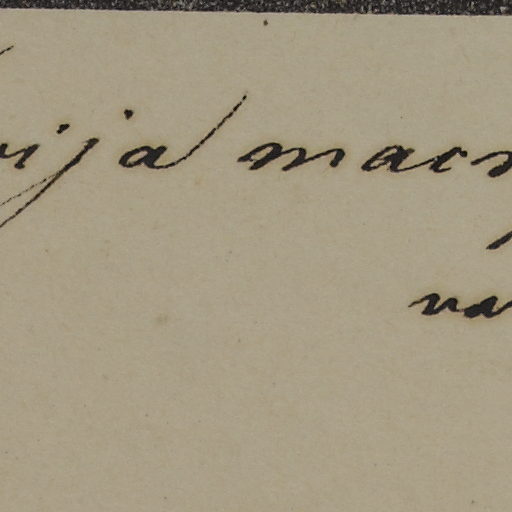 vija macr
va